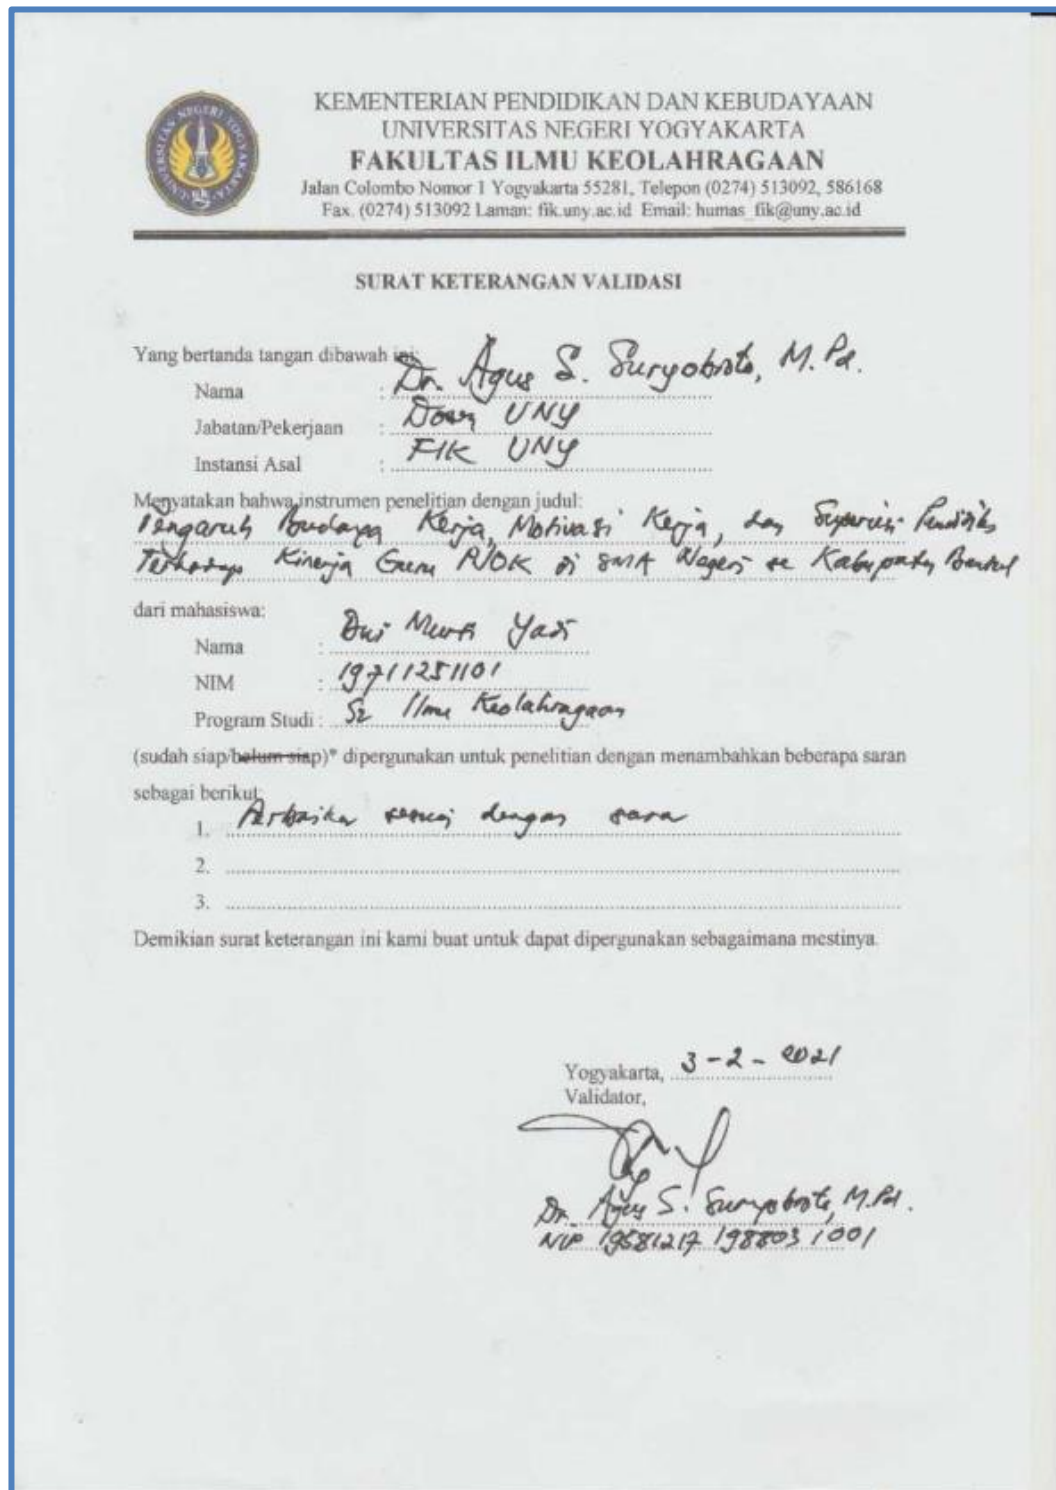 UNIVERSITAS NEGERI YOGYAKARTA
KEMENTERIAN PENDIDIKAN DAN KEBUDAYAAN
UNIVERSITAS NEGERI YOGYAKARTA
FAKULTAS ILMU KEOLAHRAGAAN
Jalan Colombo Nomor 1 Yogyakarta 55281, Telepon (0274) 513092, 586168
Fax. (0274) 513092 Laman: fik.uny.ac.id Email: humas_fik@uny.ac.id
SURAT KETERANGAN VALIDASI
Yang bertanda tangan dibawah ini:
Nama : Dr. Agus S. Suryobroto, M.Pd.
Jabatan/Pekerjaan : Dosen UNY
Instansi Asal : FIK UNY
Menyatakan bahwa instrumen penelitian dengan judul:
Pengaruh Budaya Kerja, Motivasi Kerja, dan Supervisi Pendidikan
Terhadap Kinerja Guru PJOK di SMA Negeri se Kabupaten Bantul
dari mahasiswa:
Nama : Dwi Murti Yadi
NIM : 19711251101
Program Studi : S2 Ilmu Keolahragaan
(sudah siap/belum siap)* dipergunakan untuk penelitian dengan menambahkan beberapa saran
sebagai berikut:
1. Perbaikan sesuai dengan saran
2.
3.
Demikian surat keterangan ini kami buat untuk dapat dipergunakan sebagaimana mestinya.
Yogyakarta, 3-2-2021
Validator,
Dr. Agus S. Suryobroto, M.Pd.
NIP 19581217 198803 1001